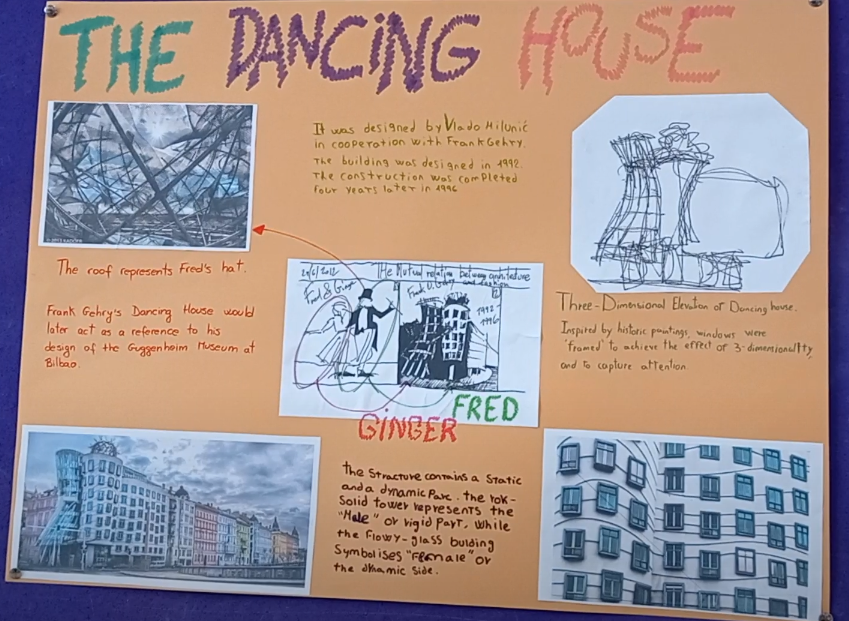 THE DANCING HOUSE
It was designed by Vlado Milunić
in cooperation with Frank Gehry.
The building was designed in 1992.
The construction was completed
four years later in 1996
The roof represents Fred's hat.
Frank Gehry's Dancing House would
later act as a reference to his
design of the Guggenheim Museum at
Bilbao.
29/6/2012 The Mutual relation between architecture
and
Fred & Ginger
Frank O. Gehry
1992
1996
GINGER
FRED
Three-Dimensional Elevation of Dancing house.
Inspired by historic paintings, windows were
'framed' to achieve the effect of 3-dimensionality,
and to capture attention.
the Structure contains a Static
and a dynamic Part. the rok-
Solid tower represents the
"Male" or rigid Part. While
the Flowy-glass bulding
Symbolises "Female" or
the dynamic side.